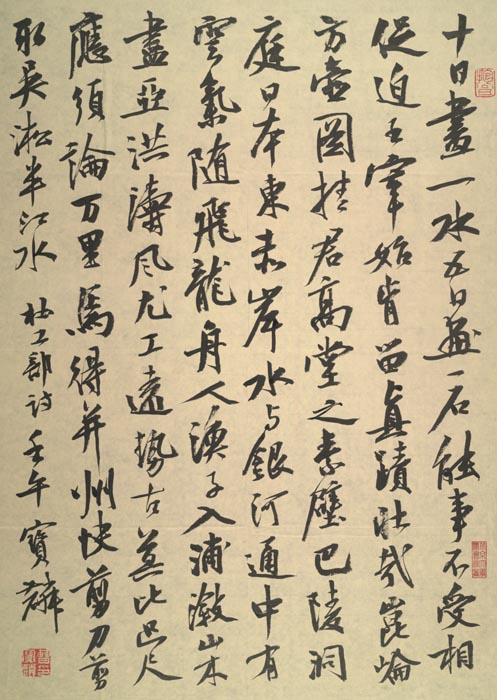 十日畫一水五日畫一石能事不受相
促迫王宰始肯留真蹟壯哉崑崙
方壺圖挂君高堂之素壁巴陵洞
庭日本東赤岸水与銀河通中有
雲氣随飛龍舟人漁子入浦漵山木
盡亞洪濤風尤工遠勢古莫比咫尺
應須論万里焉得并州快剪刀剪
取吴淞半江水 杜工部詩 壬午寶麟